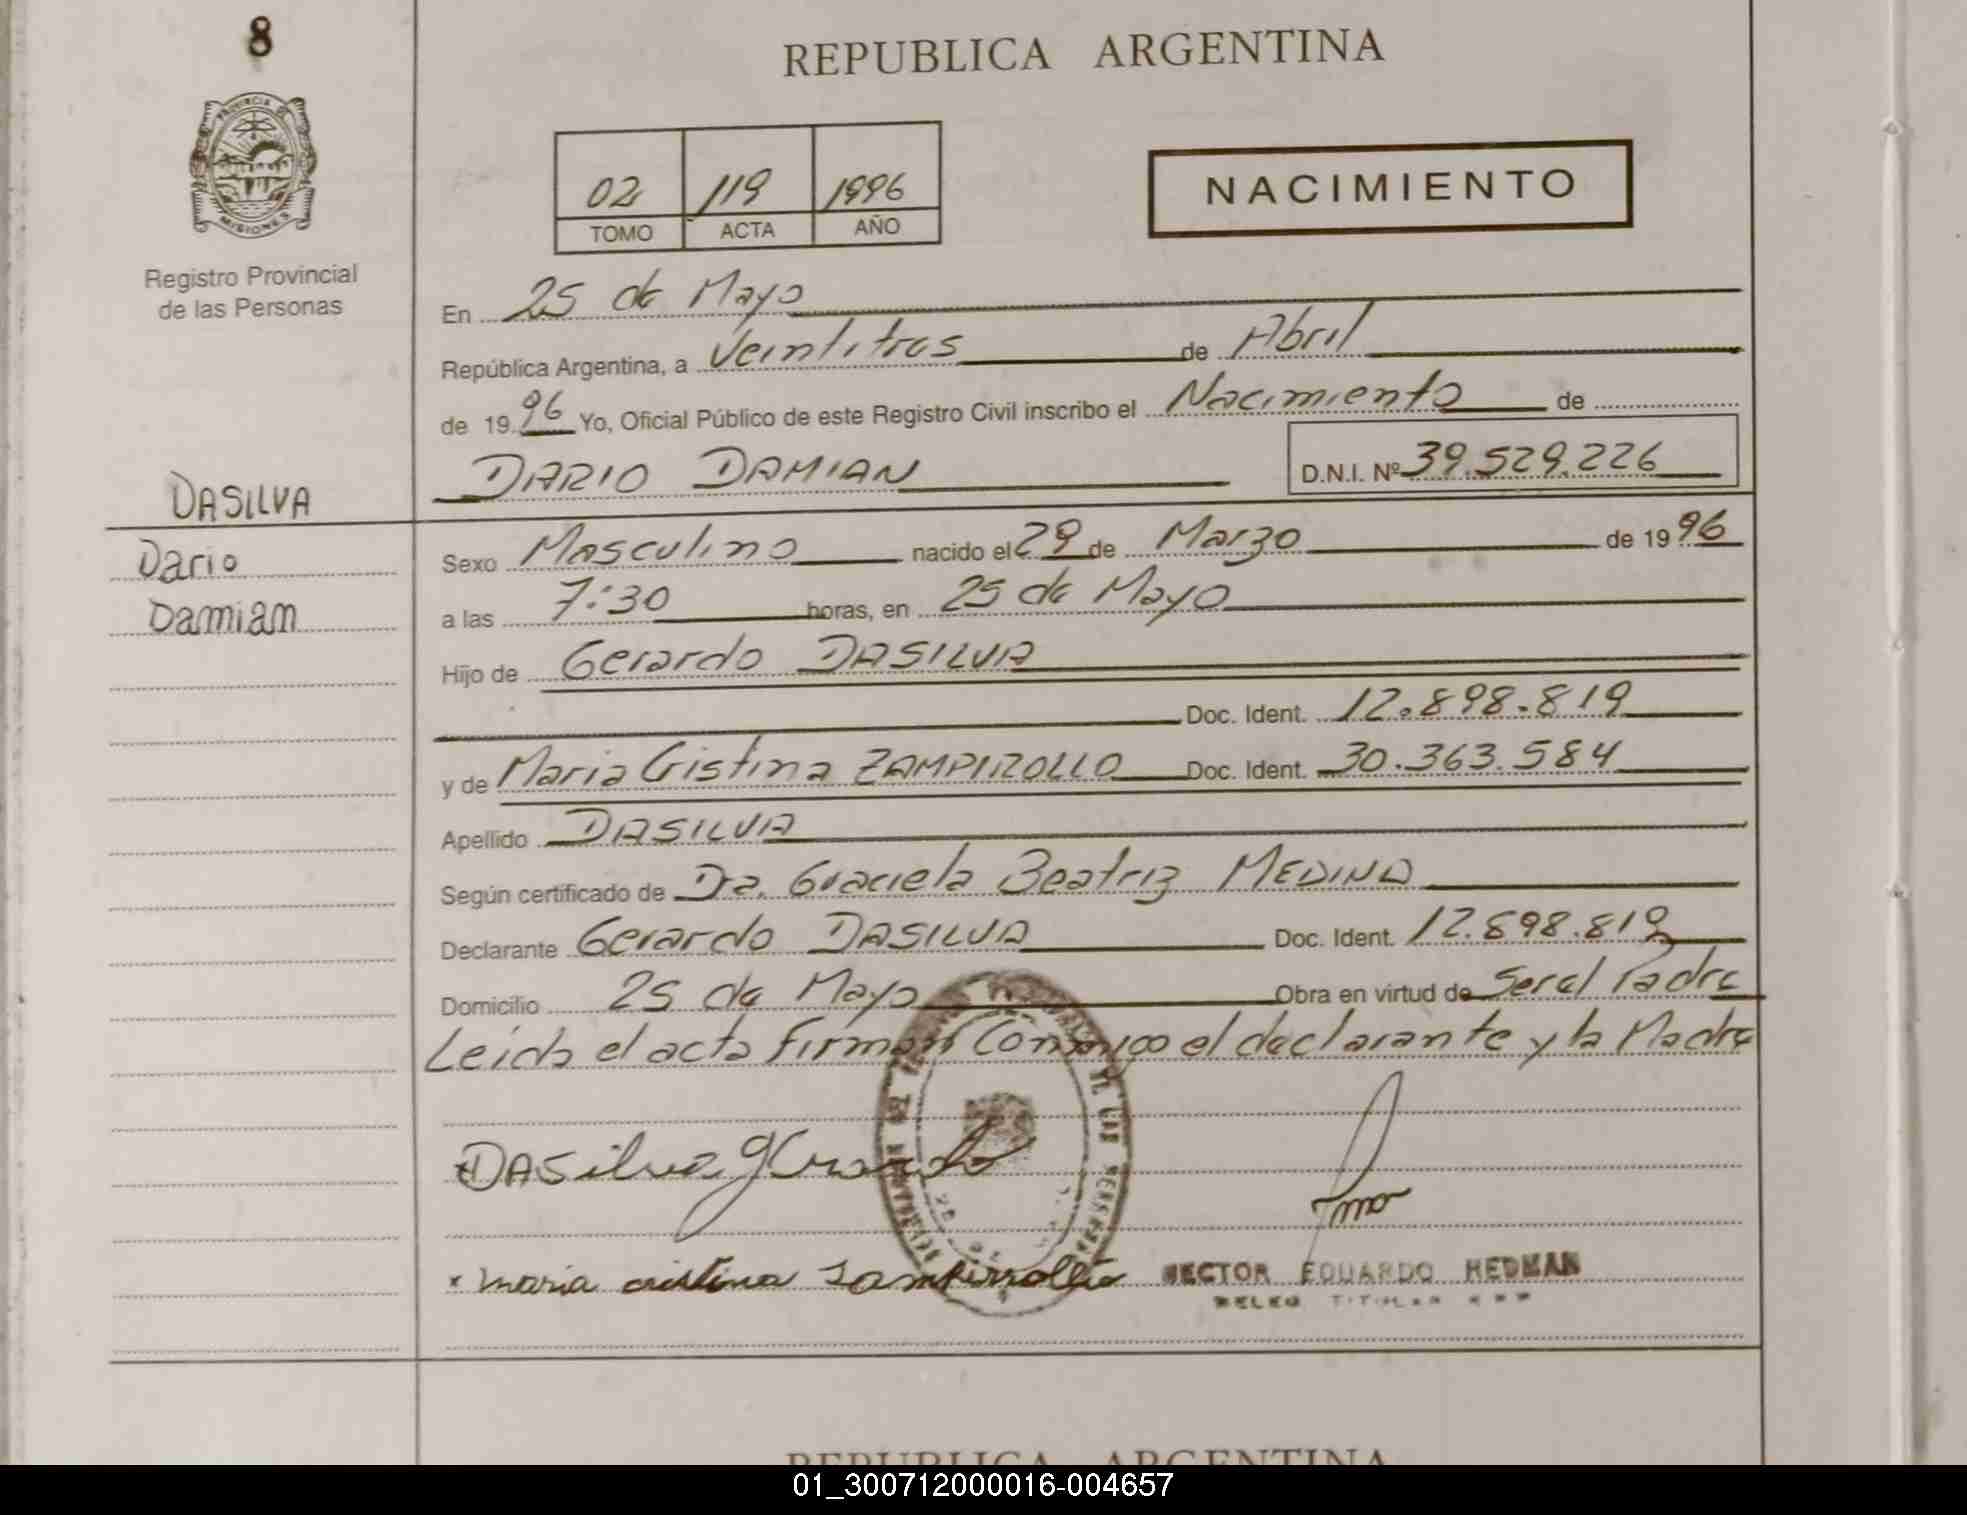 8
REPUBLICA ARGENTINA
PROVINCIA DE
MISIONES
Registro Provincial
de las Personas
02 119 1996
TOMO ACTA AÑO
NACIMIENTO
En 25 de Mayo
República Argentina, a Veintitres de Abril
de 1996 Yo, Oficial Público de este Registro Civil inscribo el Nacimiento de
DARIO DAMIAN D.N.I. Nº 39.529.226
DASILVA
Dario
Damian
Sexo Masculino nacido el 29 de Marzo de 1996
a las 7:30 horas, en 25 de Mayo
Hijo de Gerardo DASILVA
Doc. Ident. 12.898.819
y de Maria Cristina ZAMPIROLLO Doc. Ident. 30.363.584
Apellido DASILVA
Según certificado de Dra. Graciela Beatriz MEDINA
Declarante Gerardo DASILVA Doc. Ident. 12.898.819
Domicilio 25 de Mayo Obra en virtud de Ser el Padre
Leida el acta firman Conmigo el declarante y la Madre
DASilva gerardo
x maria cristina Zampirrollo
HECTOR EDUARDO HEDMAN
REPUBLICA ARGENTINA
01_300712000016-004657